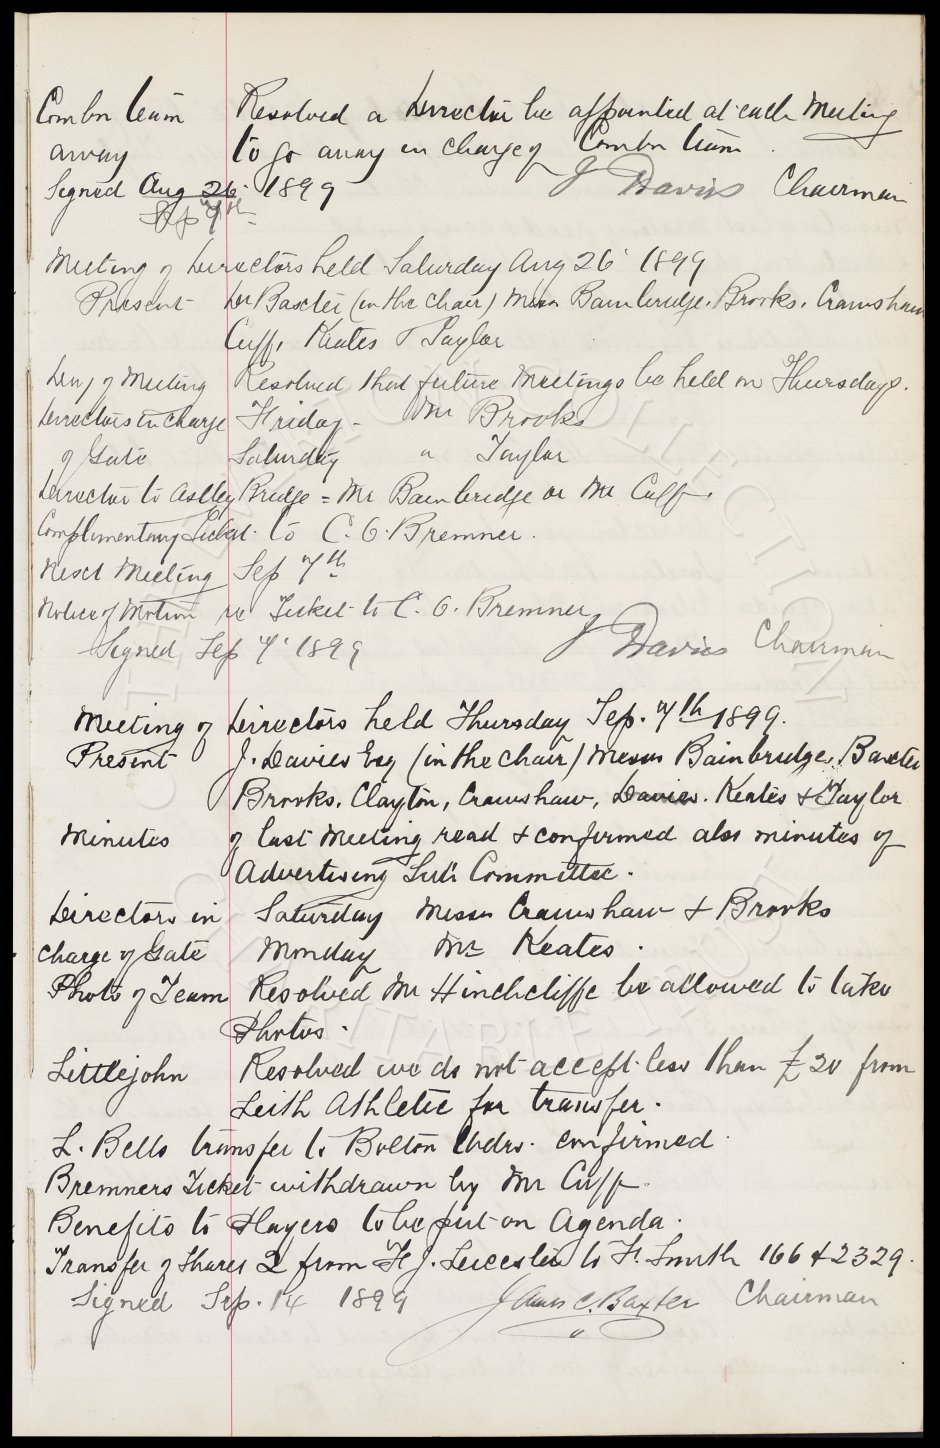 Combn team Resolved a Director be appointed at each Meeting
away to go away in charge of Combn team.
Signed Aug 26 1899 J Davies Chairman
Sep 7th
Meeting of Directors held Saturday Aug 26 1899
Present Dr Baxter (in the chair) Messrs Bainbridge, Brooks, Crawshaw
Cuff, Keates & Taylor
Day of Meeting Resolved that future Meetings be held on Thursdays.
Directors in charge Friday - Mr Brooks
of Gate Saturday " Taylor
Director to Astley Bridge = Mr Bainbridge or Mr Cuff.
Complimentary Ticket to C. O. Bremner.
Next Meeting Sep 7th
Notice of Motion re Ticket to C. O. Bremner
Signed Sep 7 1899 J Davies Chairman
Meeting of Directors held Thursday Sep. 7th 1899.
Present J. Davies Esq (in the chair) Messrs Bainbridge, Baxter
Brooks, Clayton, Crawshaw, Davies. Keates & Taylor
Minutes of last Meeting read & confirmed also minutes of
Advertising Sub Committee.
Directors in Saturday Messrs Crawshaw & Brooks
charge of Gate Monday Mr Keates.
Photo of Team Resolved Mr Hinchcliffe be allowed to take
Photos.
Littlejohn Resolved we do not accept less than £20 from
Leith Athletic for transfer.
L. Bells transfer to Bolton Wdrs. confirmed.
Bremners Ticket withdrawn by Mr Cuff.
Benefits to Players to be put on Agenda.
Transfer of Shares 2 from F J. Leicester to F. Smith 166 & 2329.
Signed Sep. 14 1899 James C. Baxter Chairman